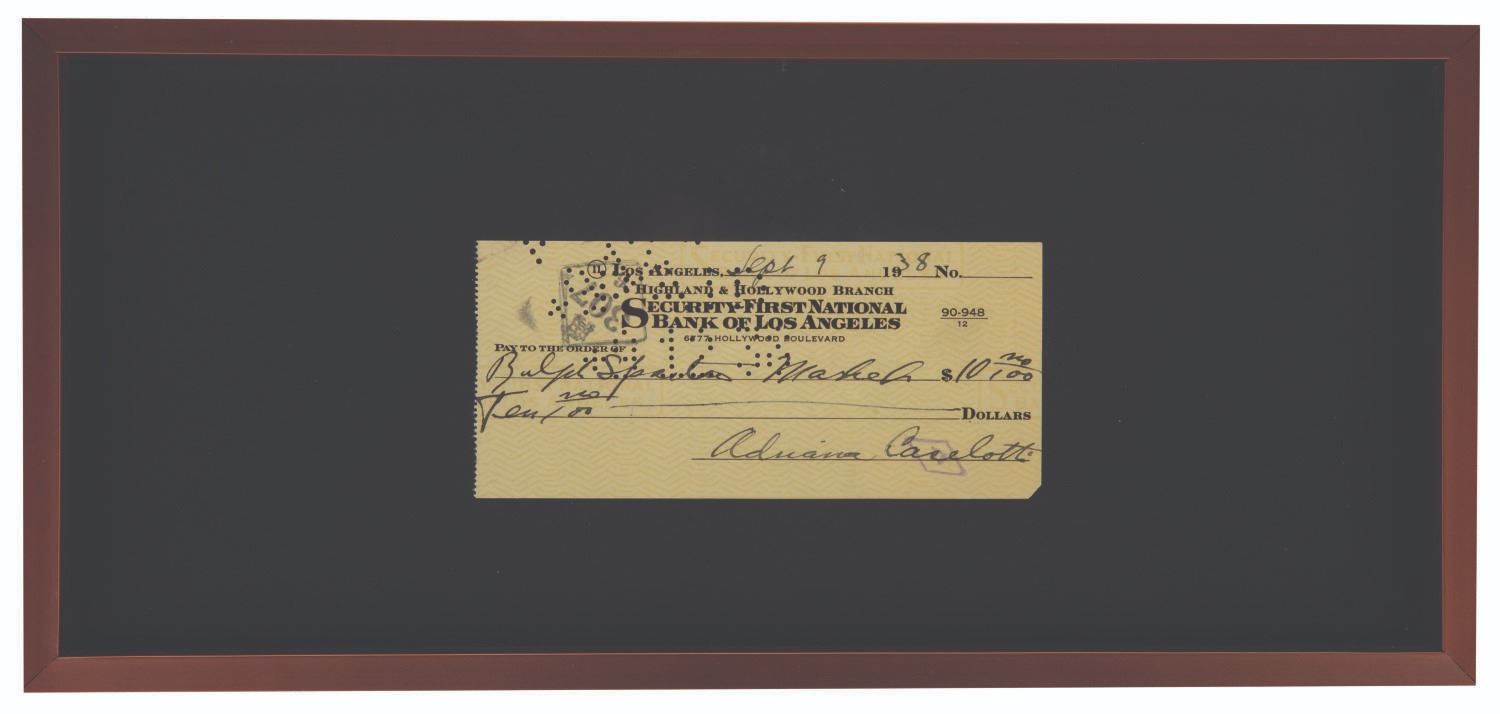 11 Los Angeles, Sept 9 1938 No.
Highland & Hollywood Branch
Security-First National
Bank of Los Angeles
90-948
12
6777 Hollywood Boulevard
Pay to the order of
Ralph $10 no/100
Ten no/100 Dollars
Adriana Caselotti